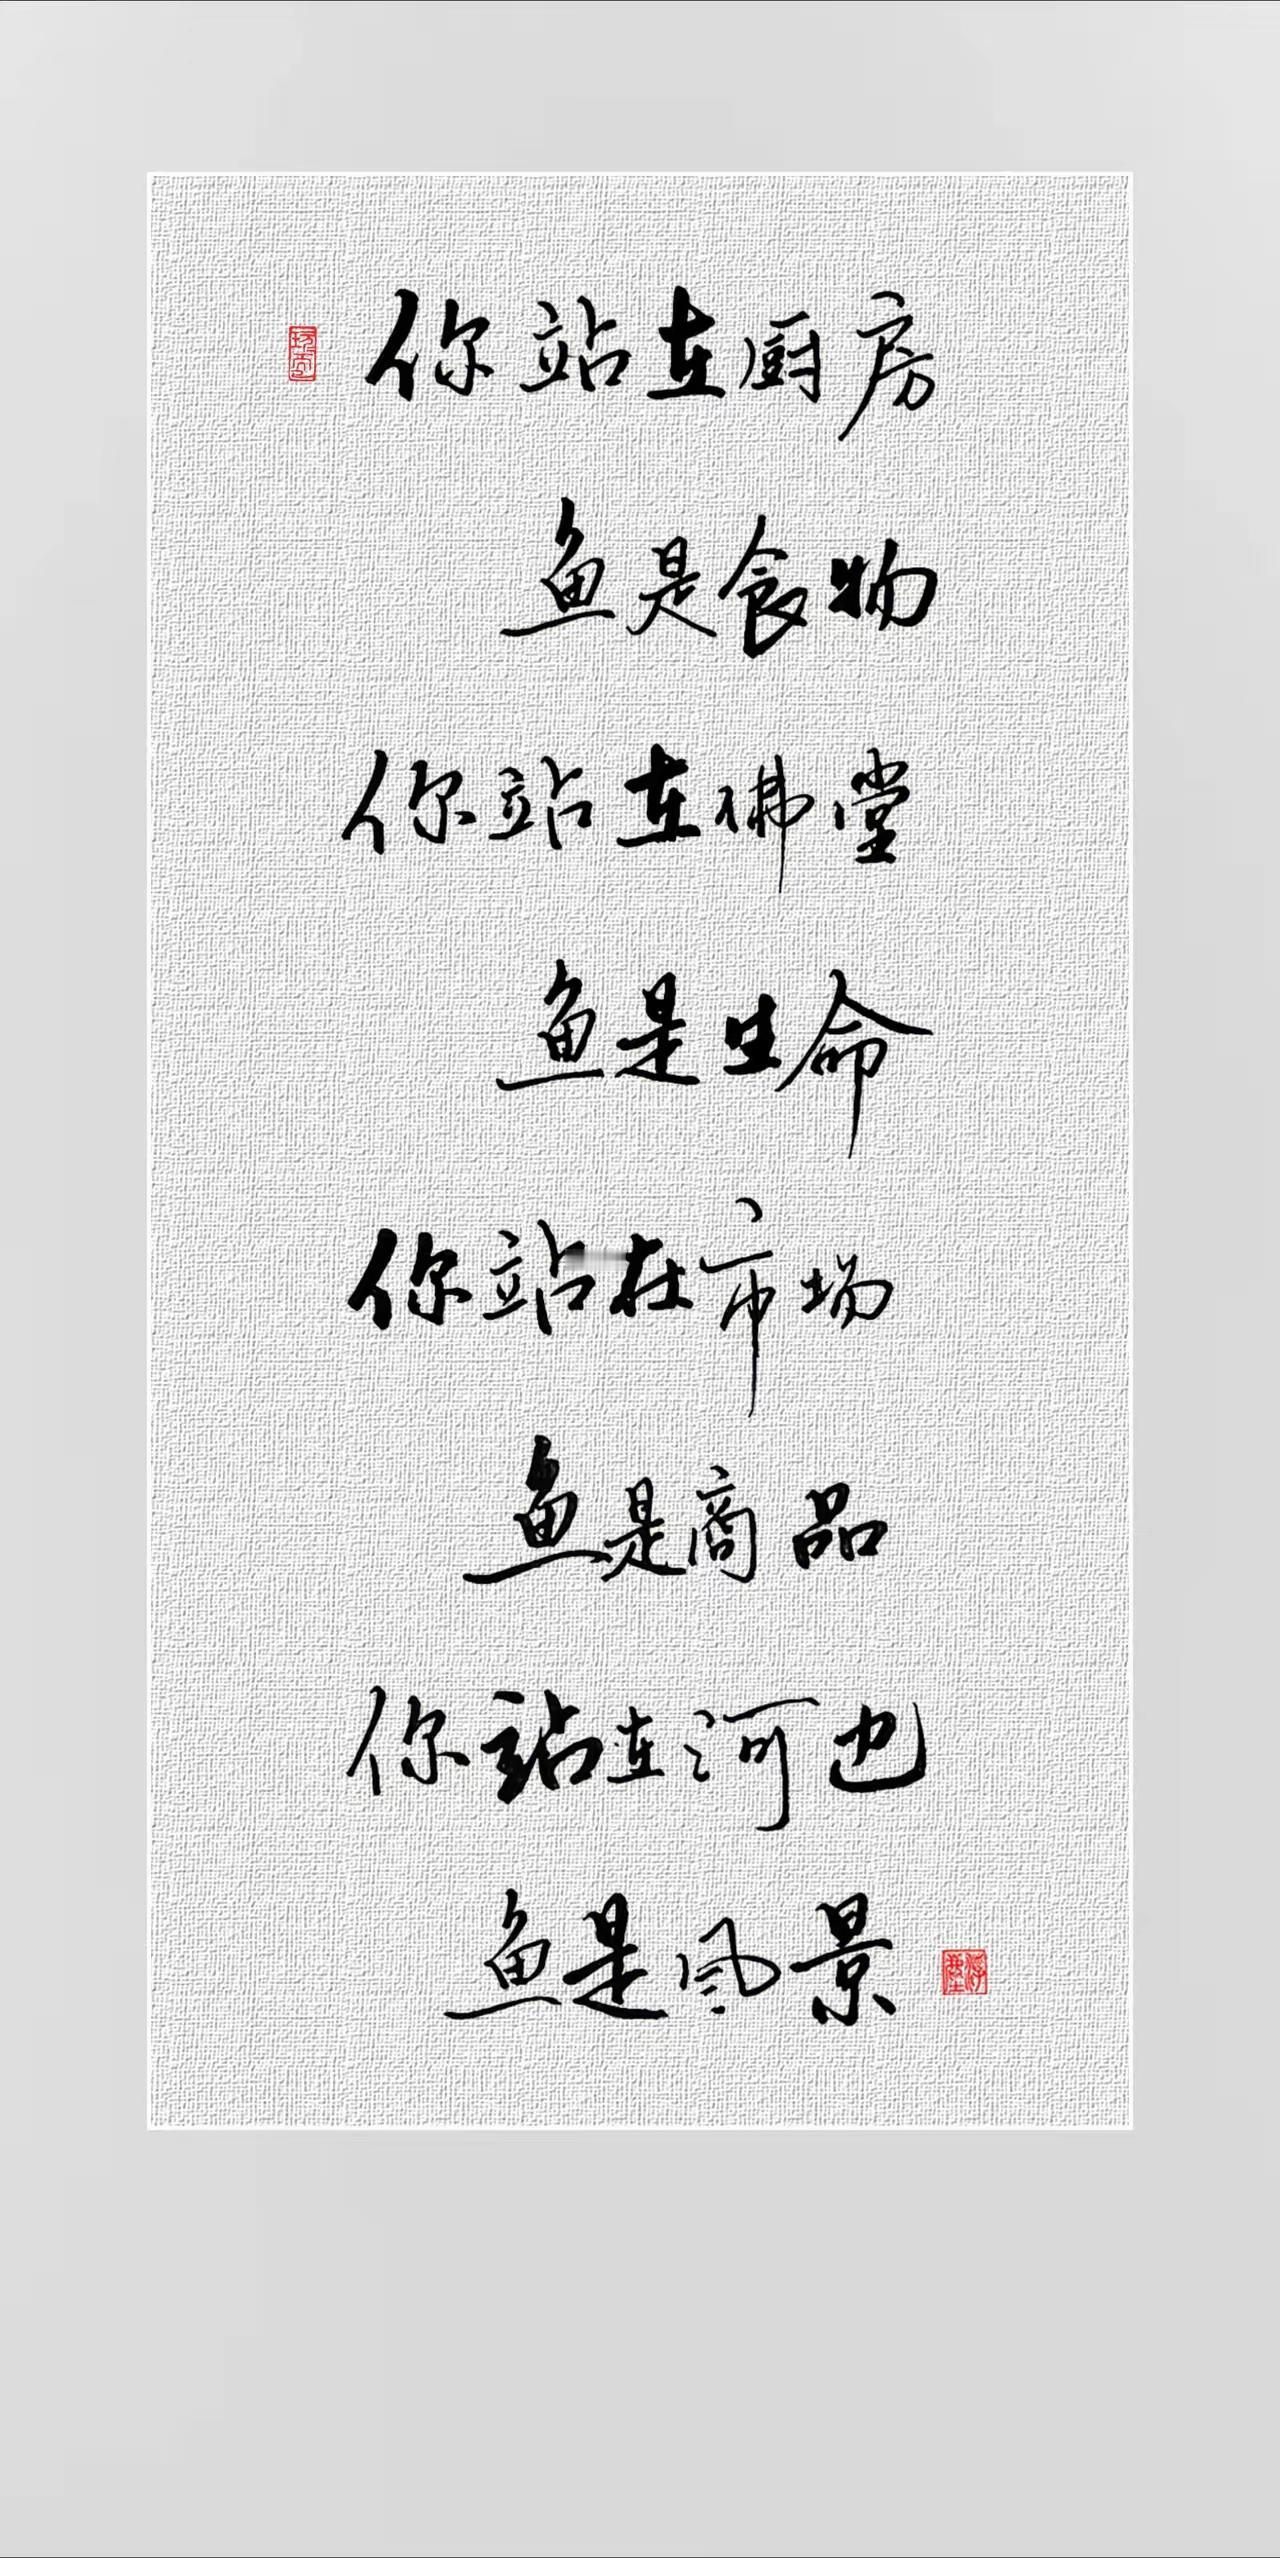 你站在厨房
鱼是食物
你站在佛堂
鱼是生命
你站在市场
鱼是商品
你站在河边
鱼是风景